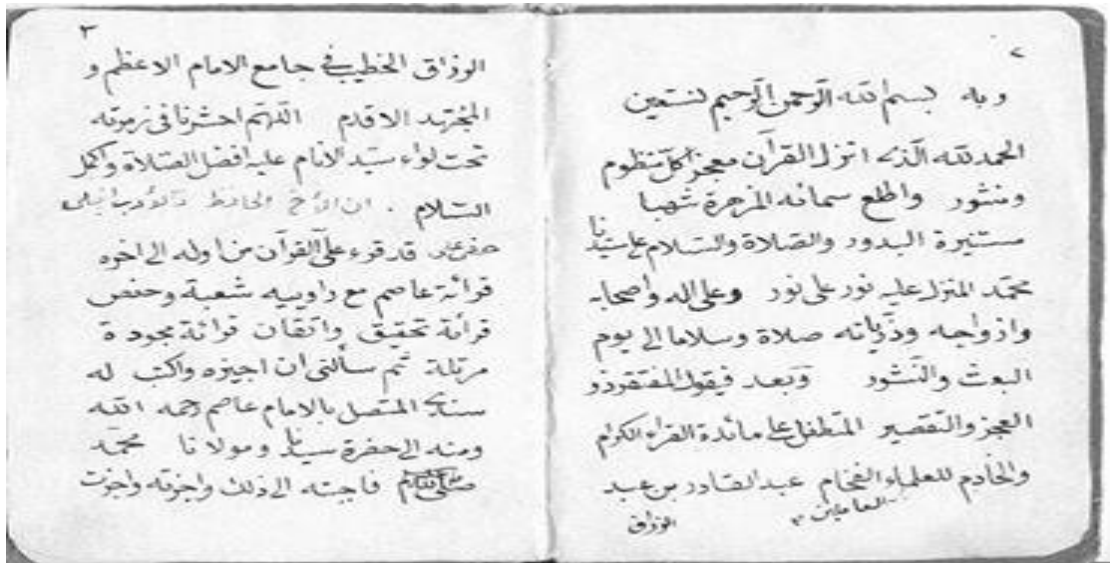 ٢
وبه بسم الله الرحمن الرحيم نستعين
الحمد لله الذي انزل القرآن معجز كل منظوم
ومنثور واطلع سمائه المزهرة شهبا
مستنيرة البدور والصلاة والسلام على سيدنا
محمّد المنزل عليه نور على نور وعلى اله واصحابه
وازواجه وذرياته صلاة وسلاما الى يوم
البعث والنشور وبعد فيقول المفتقر ذو
العجز والتقصير المتطفل على مائدة القراء الكرام
والخادم للعلماء الفخام عبد القادر بن عبد
العاملين
الرزاق
٣
الرزاق الخطيب في جامع الامام الاعظم و
المجتهد الاقدم اللهم احشرنا في زمرته
تحت لواء سيّد الانام عليه افضل الصلاة واكمل
السلام . ان الأخ الحافظ
قد قرء على القرآن من اوله الى اخره
قرائة عاصم مع راوييه شعبة وحفص
قرائة تحقيق واتقان قرائة مجودة
مرتلة ثم سألني ان اجيزه واكتب له
سندي المتصل بالامام عاصم رحمه الله
ومنه الى حضرة سيدنا ومولانا محمّد
فاجبته الى ذلك واجزته واجزت